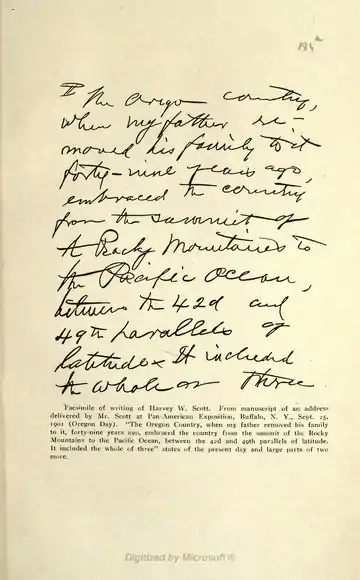 II The Oregon country,
when my father re-
moved his family to it
forty-nine years ago,
embraced the country
from the summit of
the Rocky Mountains to
the Pacific Ocean,
between the 42d and
49th parallels of
latitude. It included
the whole of three
Facsimile of writing of Harvey W. Scott. From manuscript of an address
delivered by Mr. Scott at Pan-American Exposition, Buffalo, N. Y., Sept. 25,
1901 (Oregon Day). "The Oregon Country, when my father removed his family
to it, forty-nine years ago, embraced the country from the summit of the Rocky
Mountains to the Pacific Ocean, between the 42d and 49th parallels of latitude.
It included the whole of three" states of the present day and large parts of two
more.
Digitized by Microsoft ®